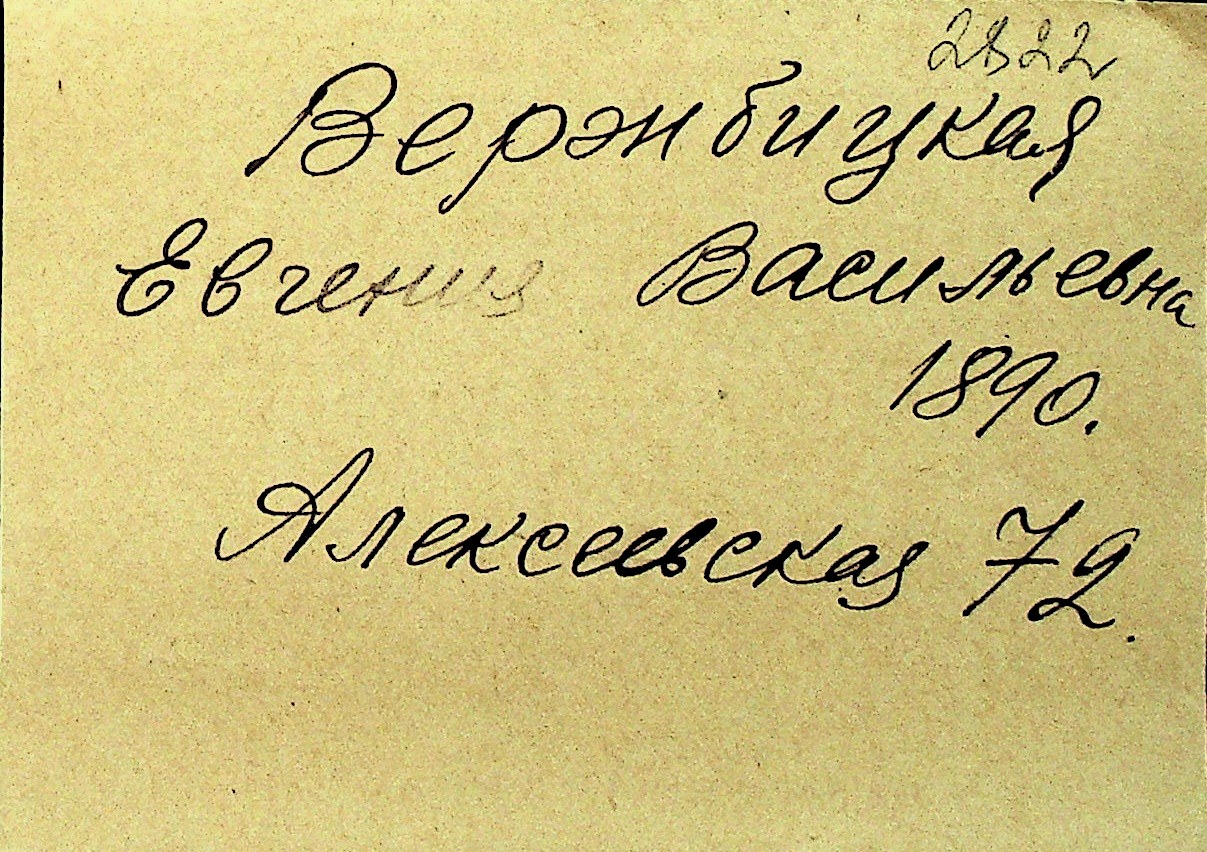 2822
Верэнбицкая
Евгения Васильевна
1890.
Алексеевская 72.